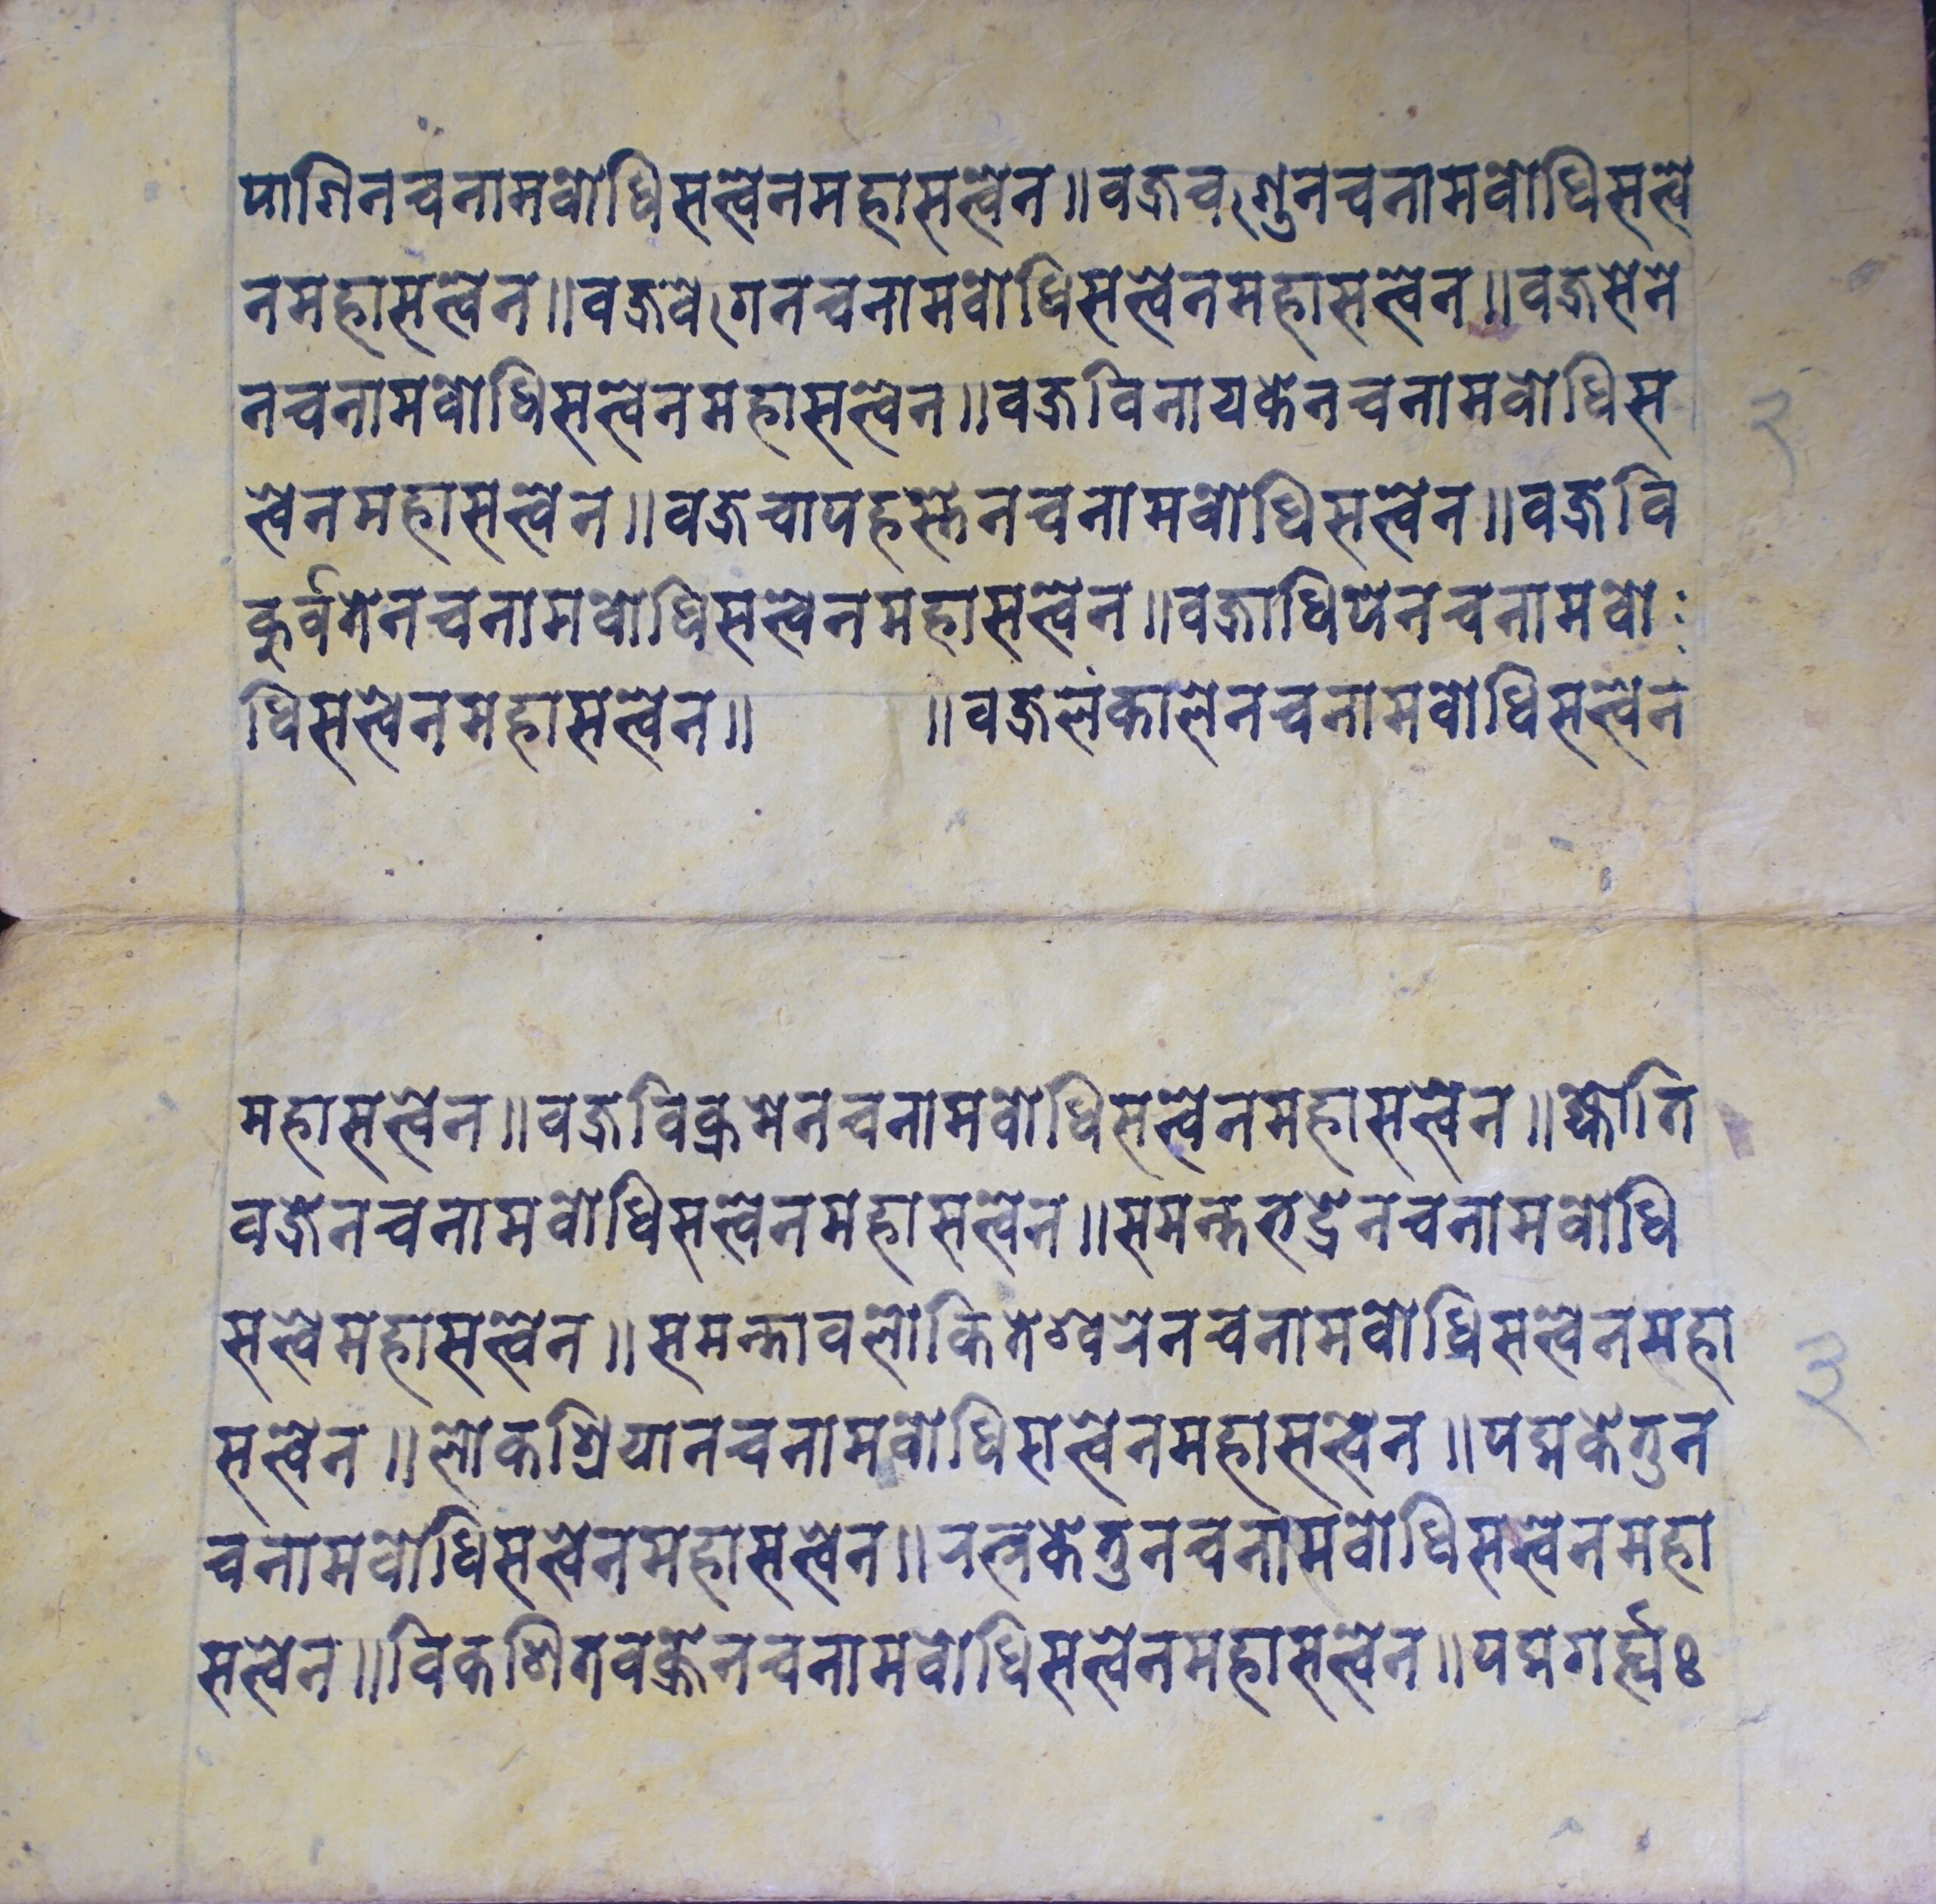 पाशिनचनामवोधिसत्वेनमहासत्वेन॥वज्रचशुनचनामवोधिसत्वे
नमहासत्वेन॥वज्रवेगेनचनामवोधिसत्वेनमहासत्वेन॥वज्रसेने
नचनामवोधिसत्वेनमहासत्वेन॥वज्रविनायकेनचनामवोधिस
त्वेनमहासत्वेन॥वज्रचापहस्तेनचनामवोधिसत्वेन॥वज्रवि
कुर्वतेनचनामवोधिसत्वेनमहासत्वेन॥वज्राधिपेनचनामवो
धिसत्वेनमहासत्वेन॥ ॥वज्रलंकालेनचनामवोधिसत्वेन
२
महासत्वेन॥वज्रविक्रमेनचनामवोधिसत्वेनमहासत्वेन॥ज्योति
वज्रेनचनामवोधिसत्वेनमहासत्वेन॥समन्तभद्रेनचनामवोधि
सत्वेमहासत्वेन॥समन्तावलोकितेश्वरेनचनामवोधिसत्वेनमहा
सत्वेन॥लोकश्रियानचनामवोधिसत्वेनमहासत्वेन॥पद्मकेतुन
चनामवोधिसत्वेनमहासत्वेन॥रत्नकेतुनचनामवोधिसत्वेनमहा
सत्वेन॥विकशितवक्रेनचनामवोधिसत्वेनमहासत्वेन॥पद्मगर्ह्य
३